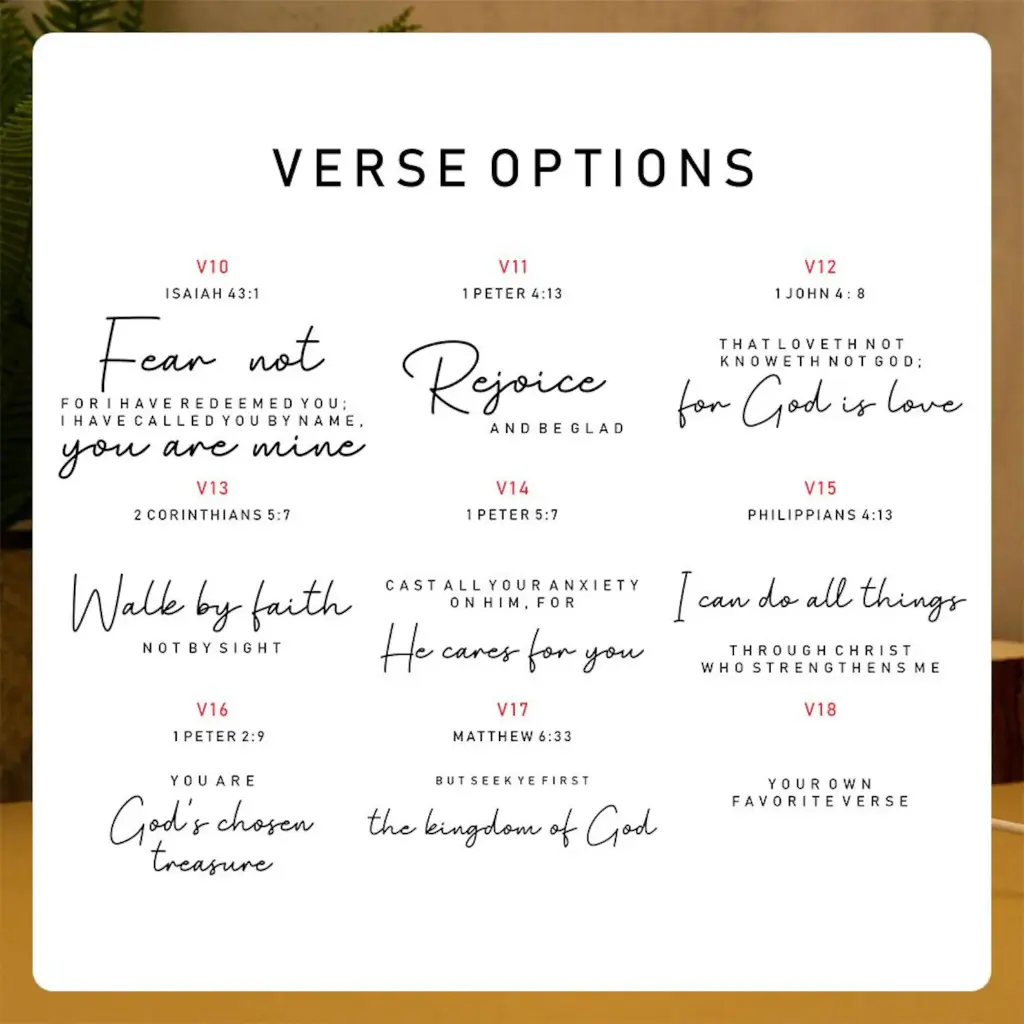 VERSE OPTIONS
V10
ISAIAH 43:1
Fear not
FOR I HAVE REDEEMED YOU;
I HAVE CALLED YOU BY NAME,
you are mine
V11
1 PETER 4:13
Rejoice
AND BE GLAD
V12
1 JOHN 4: 8
THAT LOVETH NOT
KNOWETH NOT GOD;
for God is love
V13
2 CORINTHIANS 5:7
Walk by faith
NOT BY SIGHT
V14
1 PETER 5:7
CAST ALL YOUR ANXIETY
ON HIM, FOR
He cares for you
V15
PHILIPPIANS 4:13
I can do all things
THROUGH CHRIST
WHO STRENGTHENS ME
V16
1 PETER 2:9
YOU ARE
God's chosen
treasure
V17
MATTHEW 6:33
BUT SEEK YE FIRST
the kingdom of God
V18
YOUR OWN
FAVORITE VERSE